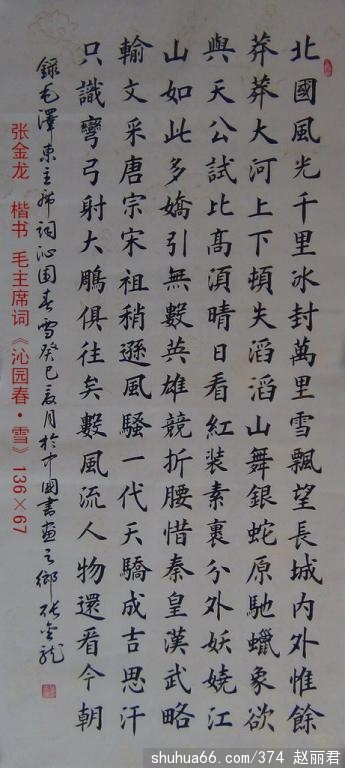 北國風光千里冰封萬里雪飄望長城內外惟餘
莽莽大河上下頓失滔滔山舞銀蛇原馳蠟象欲
與天公試比高湏晴日看紅裝素裹分外妖嬈江
山如此多嬌引無數英雄競折腰惜秦皇漢武略
輸文采唐宗宋祖稍遜風騷一代天驕成吉思汗
只識彎弓射大鵰俱往矣數風流人物還看今朝
錄毛澤東主席詞沁園春雪癸巳夏月於中國書畫之鄉張金龍
张金龙 楷书 毛主席词《沁园春·雪》136×67
shuhua66.com/374 赵丽君